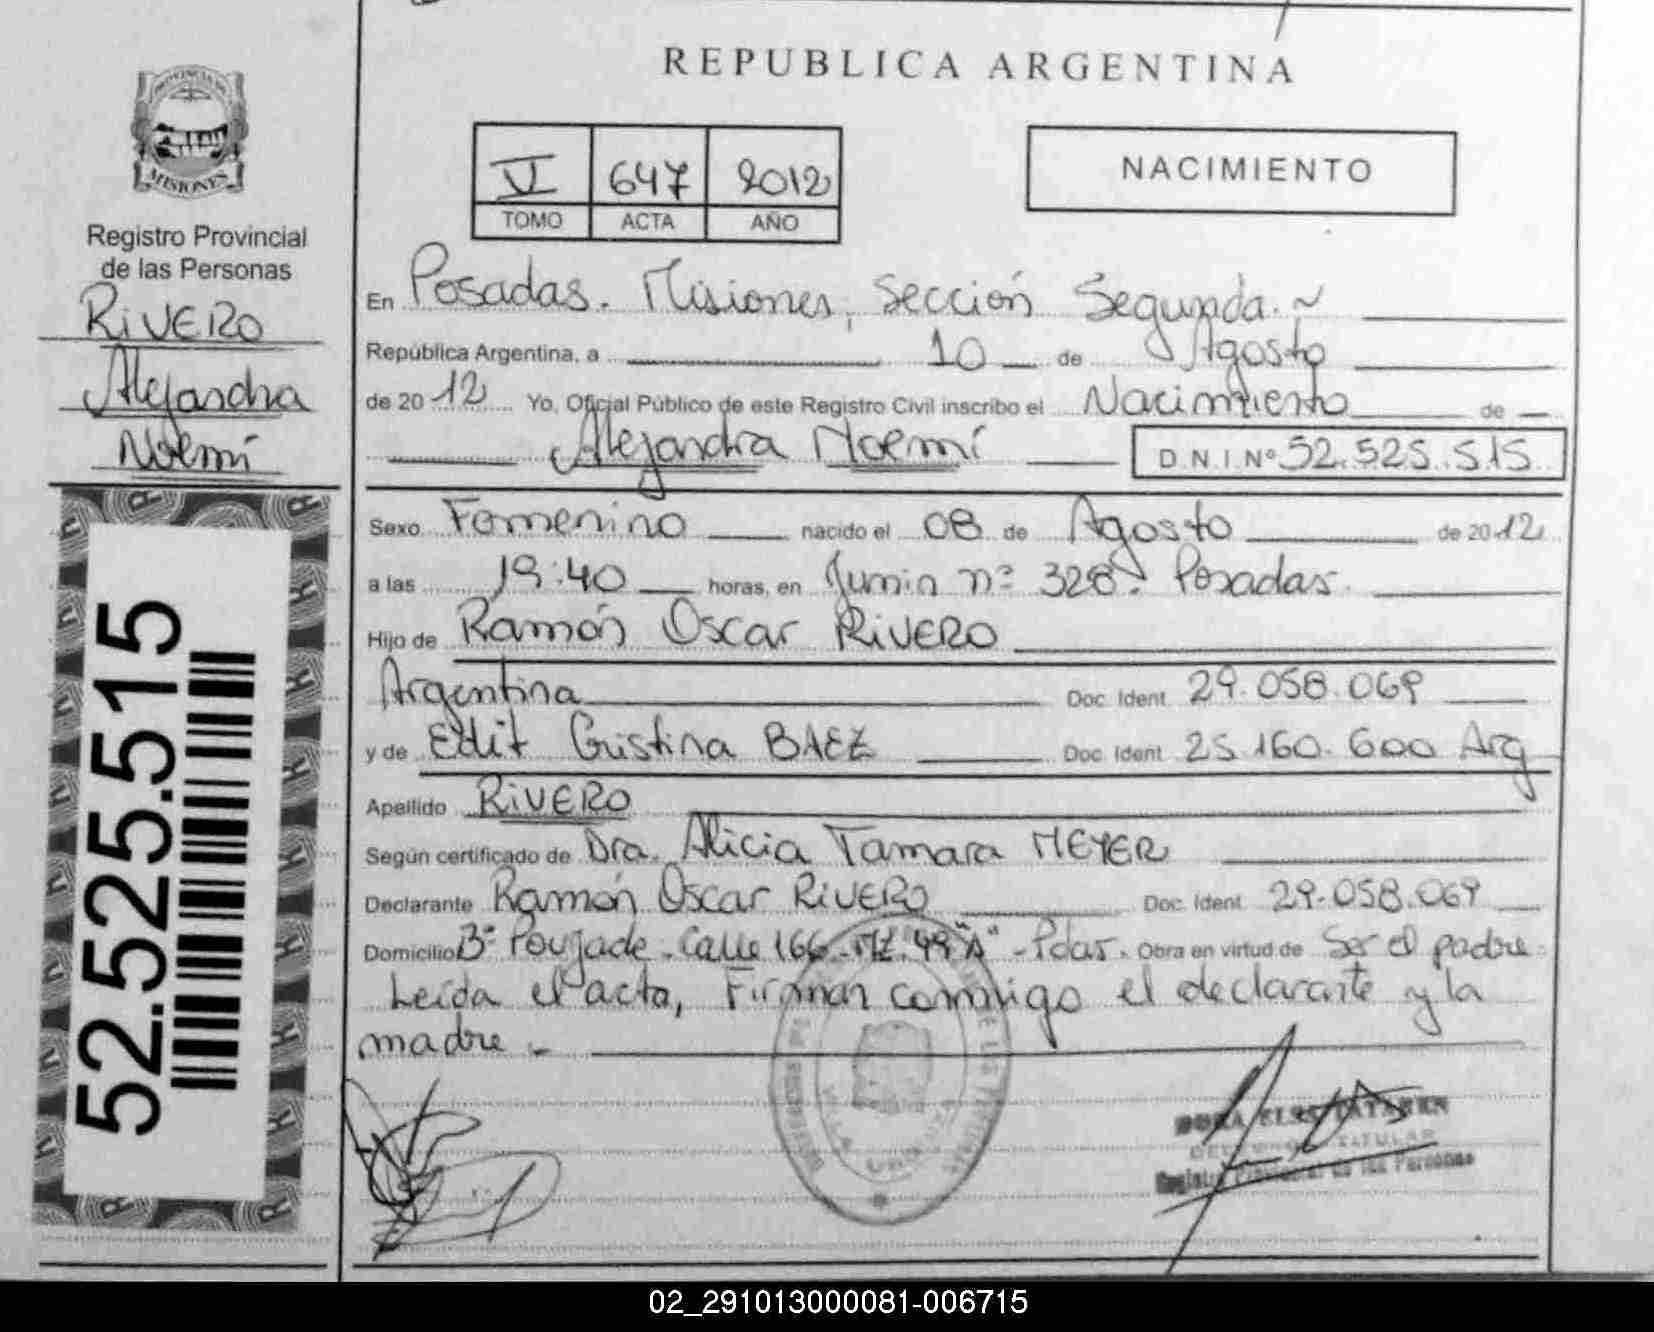 REPUBLICA ARGENTINA
PROVINCIA DE
MISIONES
Registro Provincial
de las Personas
RIVERO
Alejandra
Noemí
52.525.515
V 647 2012
TOMO ACTA AÑO
NACIMIENTO
En Posadas. Misiones, Sección Segunda.~
República Argentina, a 10 de Agosto
de 2012 Yo, Oficial Público de este Registro Civil inscribo el Nacimiento de
Alejandra Noemí D.N.I Nº 52.525.515
Sexo Femenino nacido el 08 de Agosto de 2012
a las 19:40 horas, en Junin nº 328. Posadas.
Hijo de Ramón Oscar RIVERO
Argentina Doc. Ident. 29.058.069
y de Edit Cristina BAEZ Doc. Ident. 25.160.600 Arg
Apellido RIVERO
Según certificado de Dra. Alicia Tamara MEYER
Declarante Ramón Oscar RIVERO Doc. Ident. 29.058.069
Domicilio Bº Poujade - Calle 166 - Mz. 49 "A" - Pdas. Obra en virtud de Ser el padre
Leída el acta, Firman conmigo el declarante y la
madre.-
DORA
TITULAR
Registro Provincial de las Personas
02_291013000081-006715